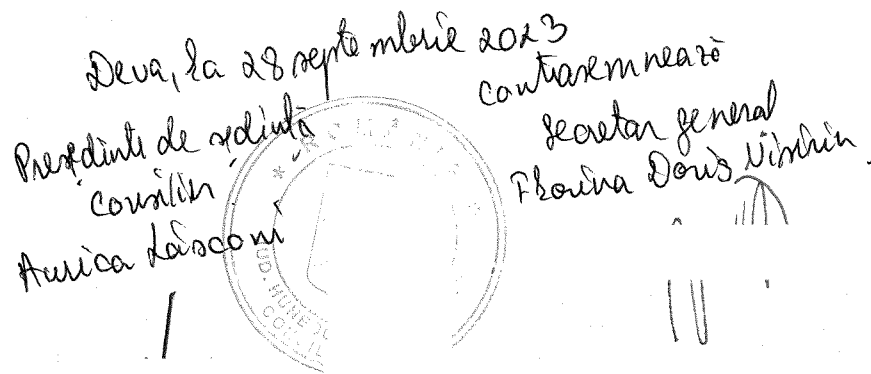 Deva, la 28 septembrie 2023
Președinte de ședință
Consilier
Aurica Lăsconi
contrasemnează
secretar general
Florina Doris
* ROMANIA *
JUD. HUNE